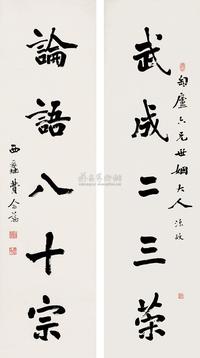 武成二三策
匋廬六兄世姻大人法政
論語八十宗
西蠡費念慈